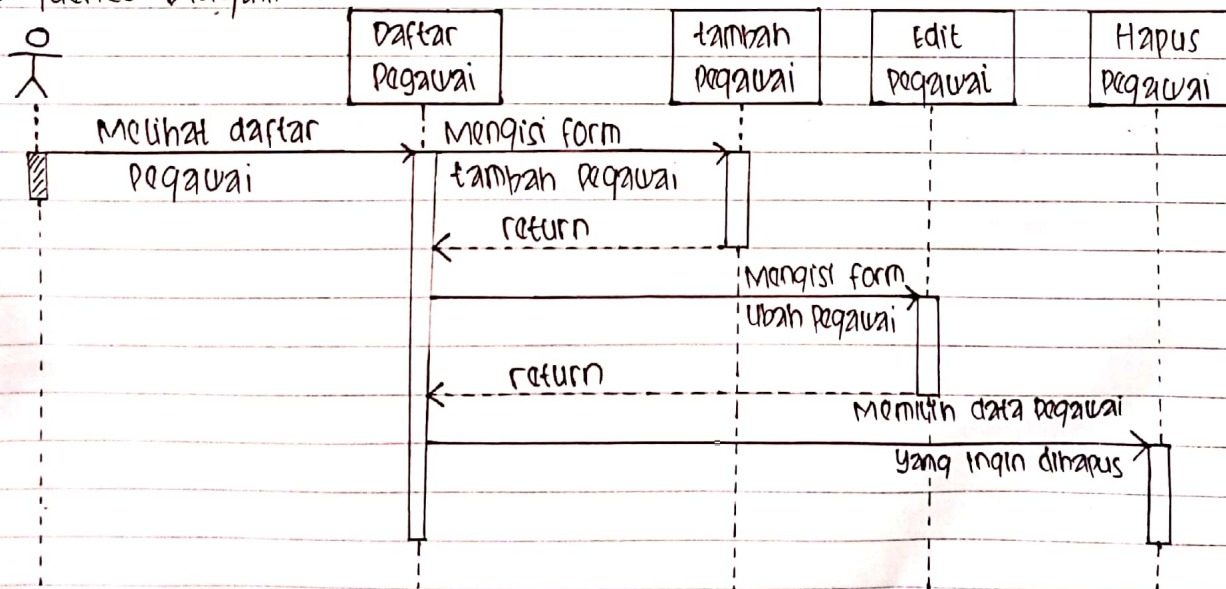 Daftar
Pegawai
tambah
pegawai
Edit
pegawai
Hapus
pegawai
Melihat daftar
pegawai
Mengisi form
tambah pegawai
return
Mengisi form
Ubah pegawai
return
Memilih data pegawai
yang ingin dihapus